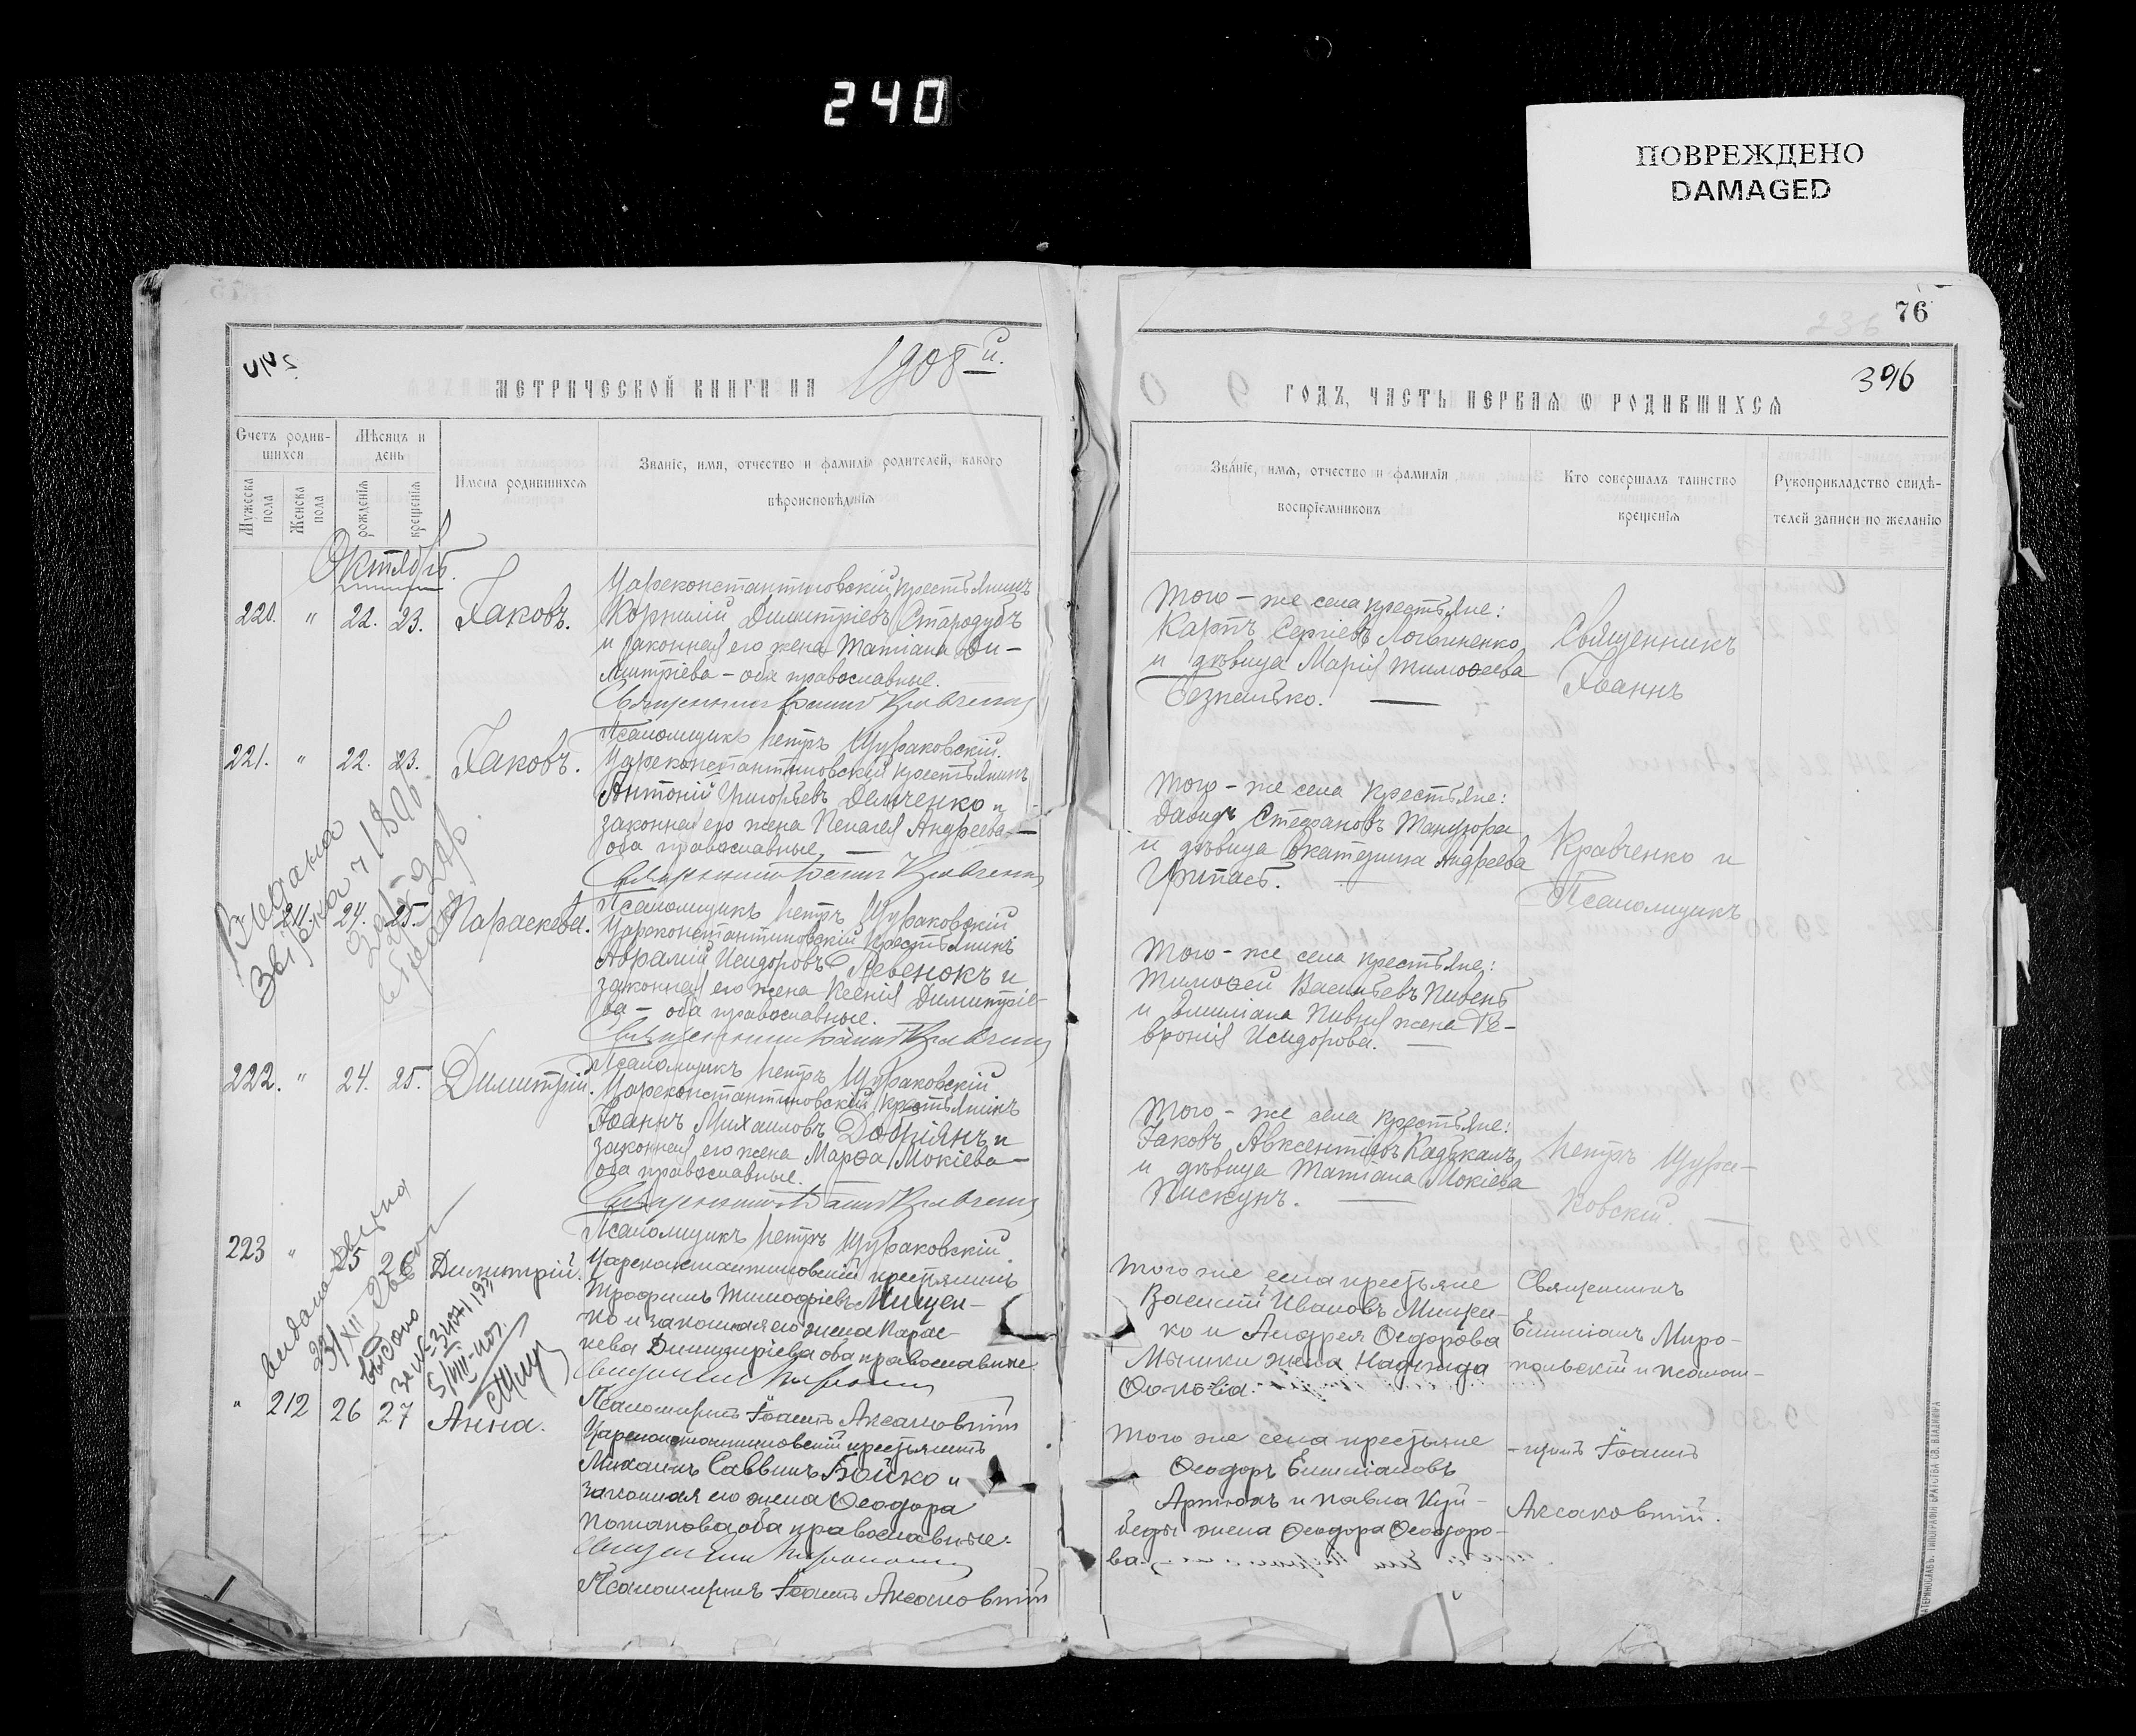 240
ПОВРЕЖДЕНО
DAMAGED
76
396
МЕТРИЧЕСКОЙ КНИГИ НА 1908 й.
ГОДЪ, ЧАСТЬ ПЕРВАЯ Ѡ РОДИВШИХСЯ
Счетъ родив-
шихся
Мѣсяцъ и
день
Мужеска пола
Женска пола
рожденія
крещенія
Имена родившихся
Званіе, имя, отчество и фамилія родителей, какого
вѣроисповѣданія
Званіе, имя, отчество и фамилія
воспріемниковъ
Кто совершалъ таинство
крещенія
Рукоприкладство свидѣ-
телей записи по желанію
Октябрь.
220. " 22. 23. Іаковъ.
Цареконстантиновскій крестьянинъ
Корнилій Димитріевъ Стародубъ
и законная его жена Татіана Ди-
митріева – оба православные.
Священникъ Іоаннъ Кравченко
Псаломщикъ Петръ Цураковскій.
Того - же села крестьяне:
Карпъ Сергіевъ
и дѣвица Марія Тимоѳеева
Безпалько.
Священникъ
Іоаннъ
221. " 22. 23. Іаковъ.
Цареконстантиновскій крестьянинъ
Антоній Григорьевъ Демченко и
законная его жена Пелагея Андреева –
оба православные.
Священникъ Іоаннъ Кравченко
Псаломщикъ Петръ Цураковскій
Того - же села крестьяне:
Давидъ Стефановъ Танцюра
и дѣвица Екатерина Андреева
Грипасъ.
Кравченко и
Псаломщикъ
211. 24. 25. Параскева.
Цареконстантиновскій крестьянинъ
Аврамій Исидоровъ Ревенокъ и
законная его жена Ксенія Димитріе-
ва – оба православные.
Священникъ Іоаннъ Кравченко
Псаломщикъ Петръ Цураковскій
Того - же села крестьяне:
Тимоѳей Васильевъ Пивень
и Емиліана Пивня жена Ѳе-
вронія Исидорова.
222. " 24. 25. Димитрій.
Цареконстантиновскій крестьянинъ
Іоаннъ Михаиловъ Добріянъ и
законная его жена Марѳа Мокіева –
оба православные.
Священникъ Іоаннъ Кравченко
Псаломщикъ Петръ Цураковскій
Того - же села крестьяне:
Іаковъ Авксентіевъ Кадькалъ
и дѣвица Татіана Мокіева
Пискунъ.
Петръ Цура-
ковскій.
223 " 25 26 Димитрій.
Цареконстантиновскій крестьянинъ
Трофимъ Тимофіевъ Мищен-
ко и законная его жена Парас-
кева Димитріева оба православные.
Псаломщикъ Іоаннъ Аксаковскій
Того же села крестьяне
Василій Ивановъ Мищен-
ко и Андрея Ѳедорова
жена Надежда
Священникъ
Емиліанъ Миро-
польскій и псалом-
" 212 26 27 Анна.
Цареконстантиновскій крестьянинъ
Михаилъ Саввинъ Бойко и
законная его жена Ѳеодора
Потапова оба православные.
Псаломщикъ Іоаннъ Аксаковскій
Того же села крестьяне
Ѳеодоръ Емиліановъ
Артюхъ и Павла Куй-
беды жена Ѳеодора Ѳеодоро-
ва.
-щикъ Іоаннъ
Аксаковскій.